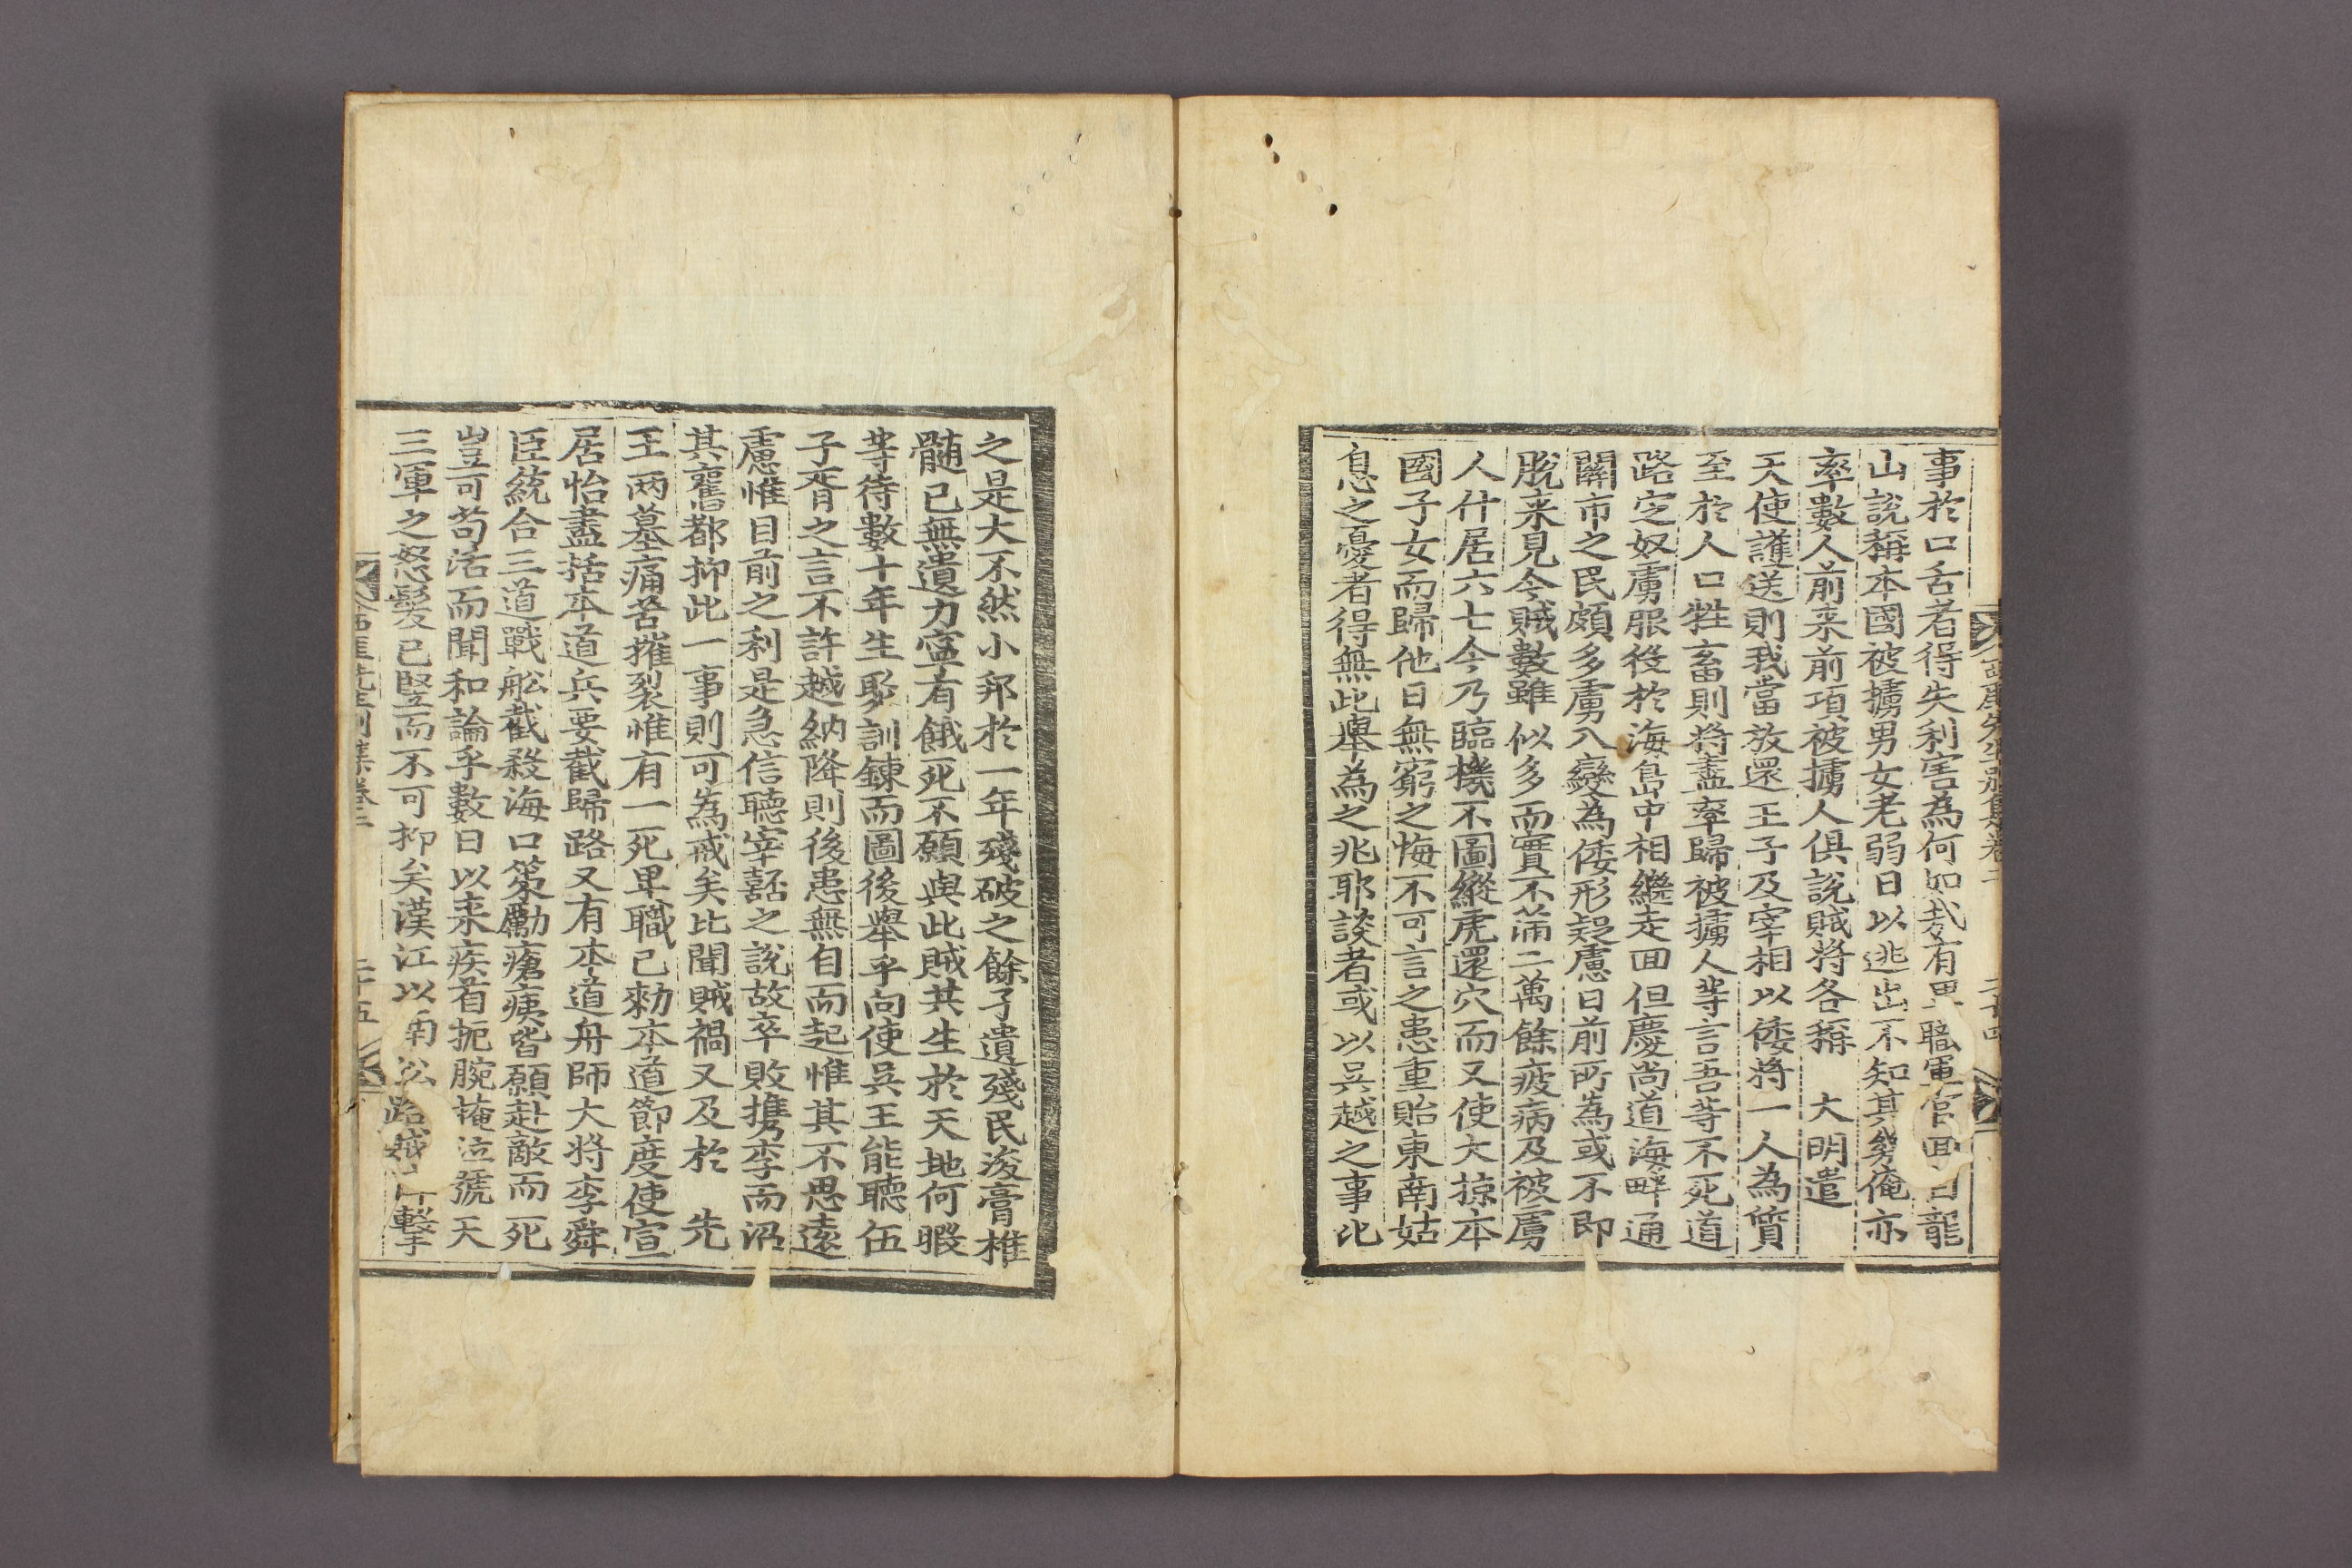 事於口舌者得失利害為何如哉有 職軍官 龍
山說稱本國被擄男女老弱日以逃出不知其幾俺亦
率數人前来前項被擄人俱說賊將各稱 大明遣
天使護送則我當放還王子及宰相以倭將一人為質
至於人口牲畜則將盡率歸被擄人等言吾等不死道
路定奴虜服役於海島中相繼走回但慶尚道海畔通
關市之民頗多虜入變為倭形疑慮日前所為或不即
脫来見今賊數雖似多而實不滿二萬餘疲病及被虜
人什居六七今乃臨機不圖縱虎還穴而又使大掠本
國子女而歸他日無窮之悔不可言之患重貽東南姑
息之憂者得無此舉為之兆耶談者或以吳越之事比
之是大不然小邦於一年殘破之餘孑遺殘民浚膏椎
髓已無遺力寧有餓死不願與此賊共生於天地何暇
等待數十年生聚訓鍊而圖後舉乎向使吳王能聽伍
子胥之言不許越納降則後患無自而起惟其不思遠
慮惟目前之利是急信聽宰嚭之說故卒敗擕李而沼
其舊都抑此一事則可為戒矣比聞賊禍又及於 先
王两墓痛苦摧裂惟有一死卑職已勑本道節度使宣
居怡盡括本道兵要截歸路又有本道舟師大將李舜
臣統合三道戰舩截殺海口策勵瘡痍皆願赴敵而死
豈可苟活而聞和論乎數日以来疾首扼腕掩泣號天
三軍之怒髮已竪而不可抑矣漢江以南 擊